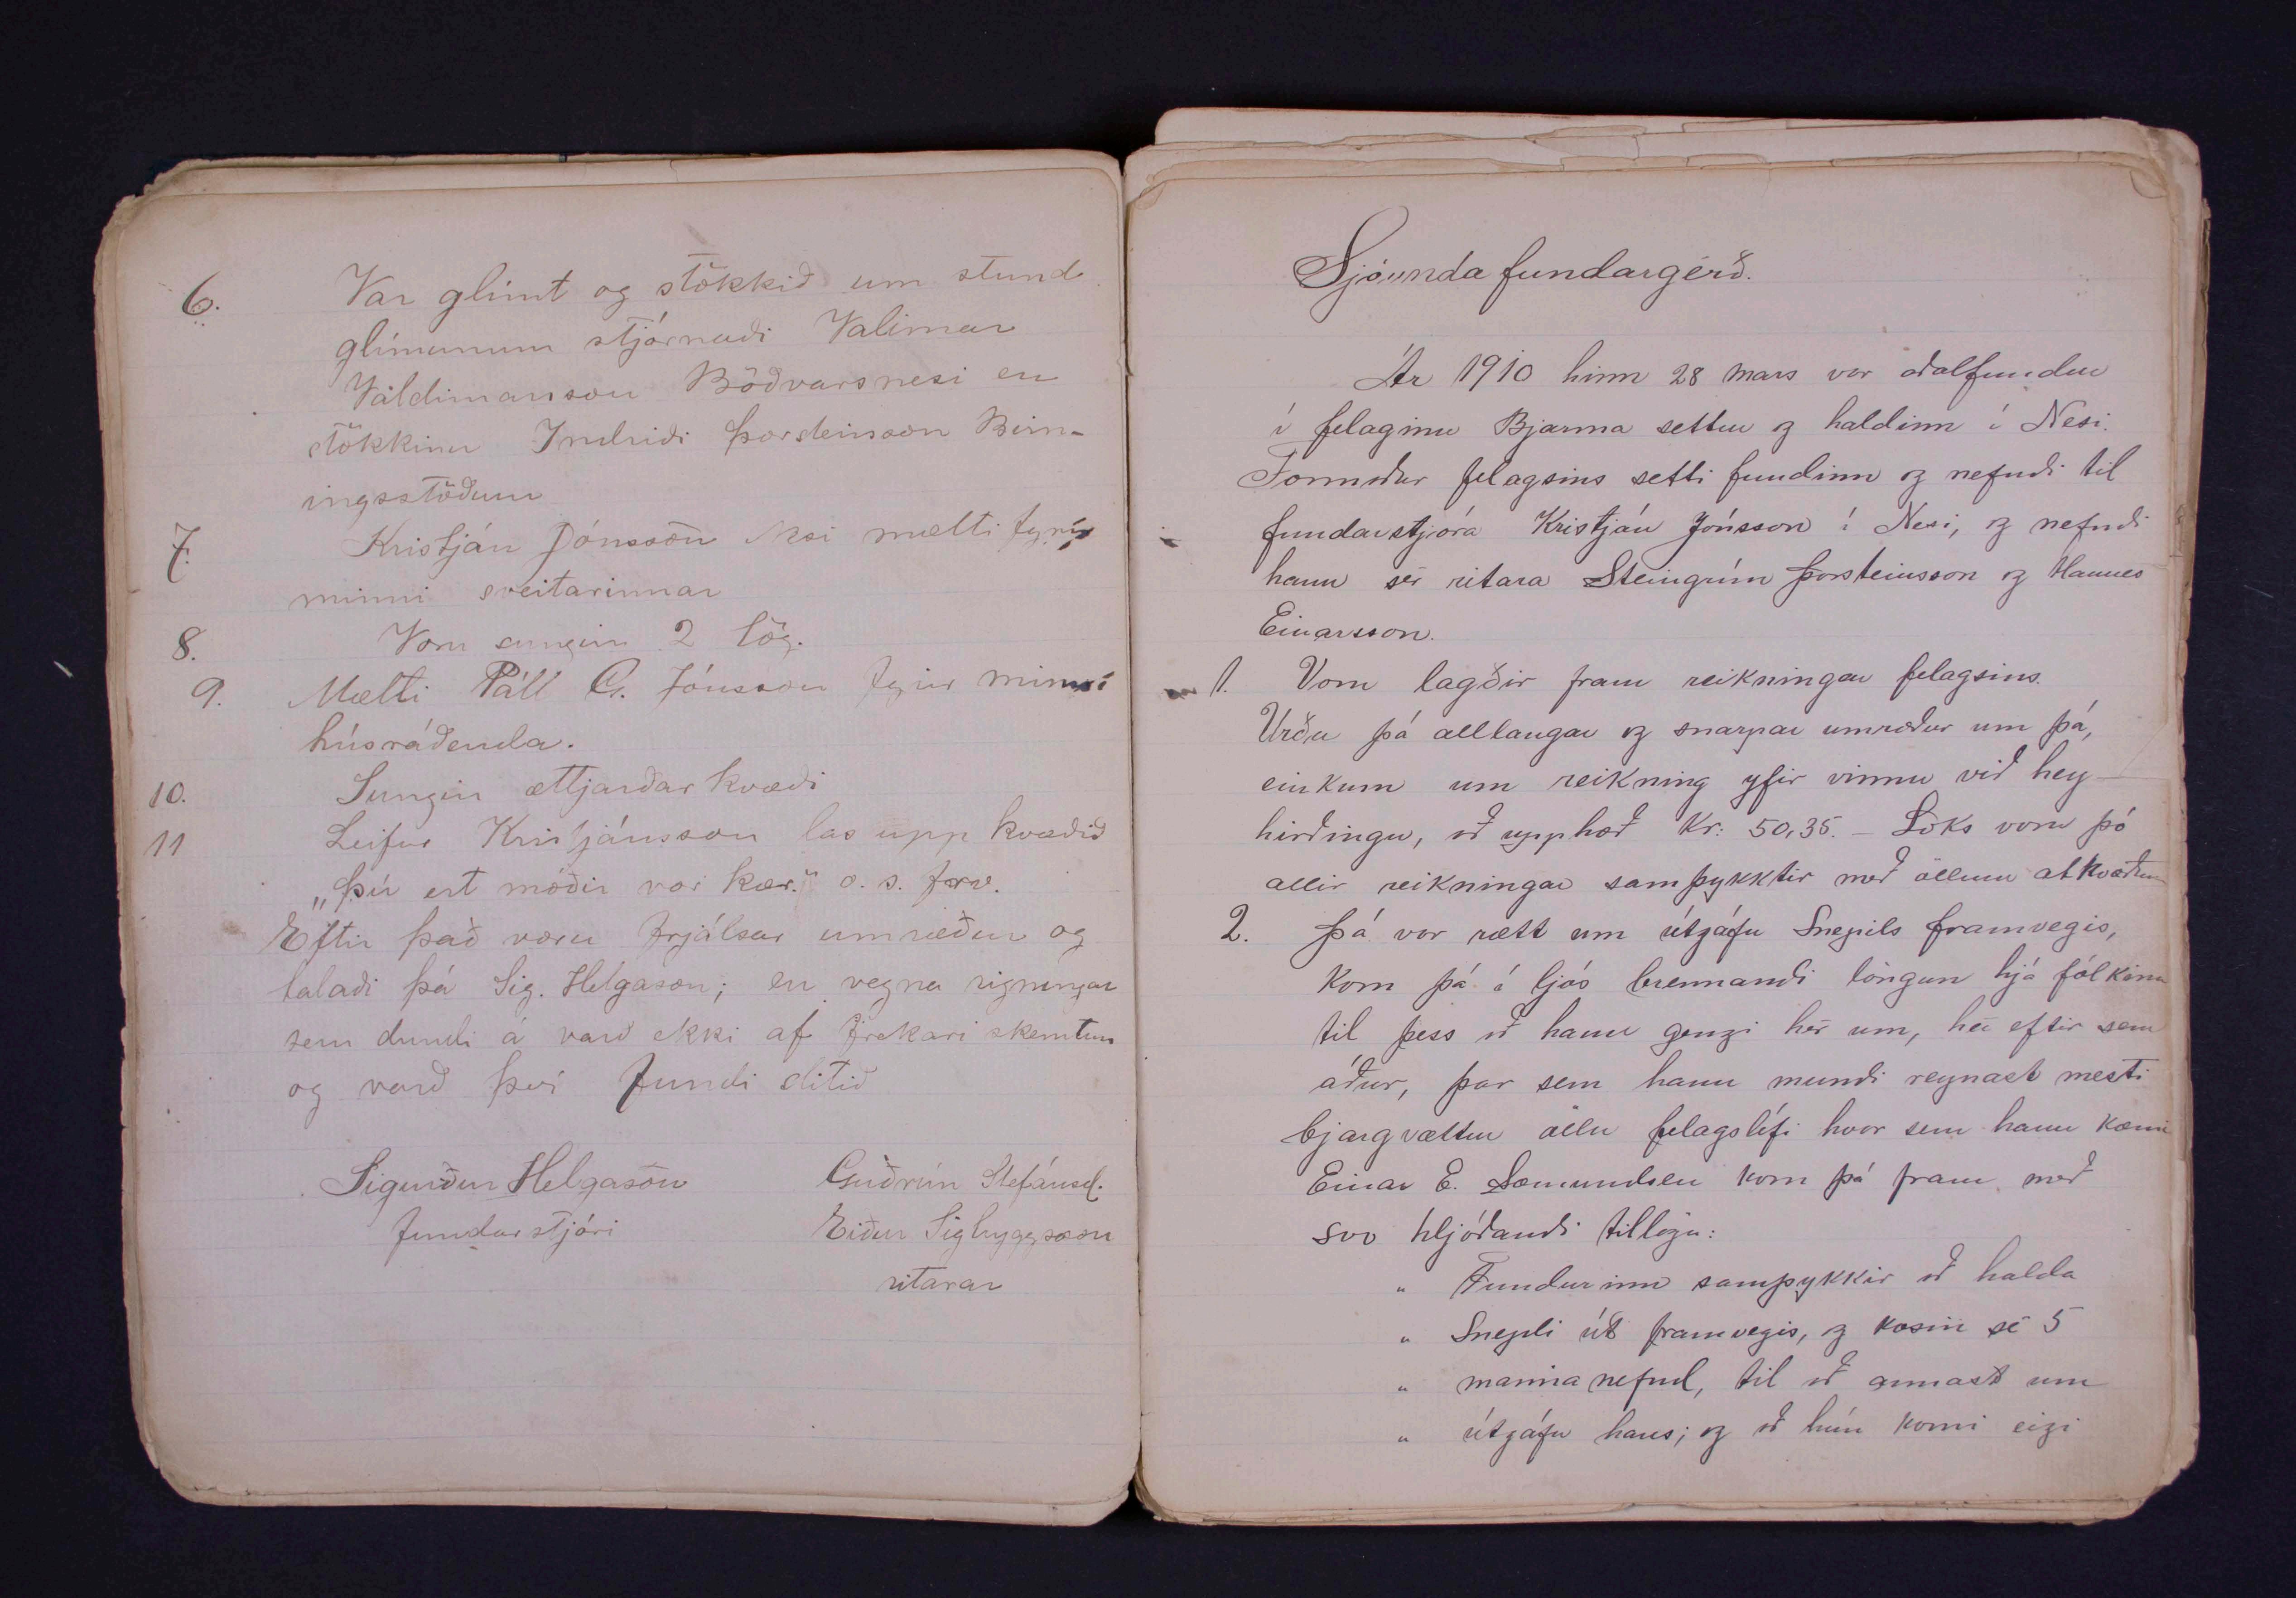 6. Var glímt og stökkið um stund
glímunum stjórnaði Valimar
Valdimarsson Böðvarsnesi en
stökkinu Indriði Þorsteinsson Birn-
ingsstöðum
7. Kristján Jónsson Nesi mælti fyrir
minni sveitarinnar
8. Voru sungin 2 lög.
9. Mælti Páll G. Jónsson fyrir minni
húsráðenda.
10. Sungin ættjarðar kvæði
11 Leifur Kristjánsson las upp kvæðið
„Þú ert móðir vor kær." o. s. frv.
Eftir það voru frjálsar umræður og
talaði þá Sig. Helgason; en vegna rigningar
sem dundi á varð ekki af frekari skemtun
og varð því fundi slitið
Sigurður Helgason
fundarstjóri
Guðrún Stefánsd.
Eiður Sigtryggsson
ritarar
Sjöunda fundargérð.
Ár 1910 hinn 28 mars var aðalfundur
í felaginu Bjarma settur og haldinn í Nesi.
Formaður felagsins setti fundinn og nefndi til
fundarstjóra Kristján Jónsson í Nesi, og nefndi
hann sér ritara Steingrím Þorsteinsson og Hannes
Einarsson.
1. Voru lagðir fram reikningar felagsins.
Urðu þá alllangar og snarpar umræður um þá,
einkum um reikning yfir vinnu við hey-
hirðingu, að upphæð Kr: 50,35. – Loks voru þó
allir reikningar samþykktir með öllum atkvæðum
2. Þá var rætt um útgáfu Snepils framvegis,
kom þá í ljós brennandi löngun hjá fólkinu
til þess að hann gengi hér um, hér eftir sem
áður, þar sem hann mundi reynast mesti
bjargvættur öllu felagslífi hvar sem hann kæmi
Einar E. Sæmundsen kom þá fram með
svo hljóðandi tillögu:
" Fundurinn samþykkir að halda
" Snepli út framvegis, og kosin sé 5
" manna nefnd, til að annast um
" útgáfu hans; og að hún komi eigi